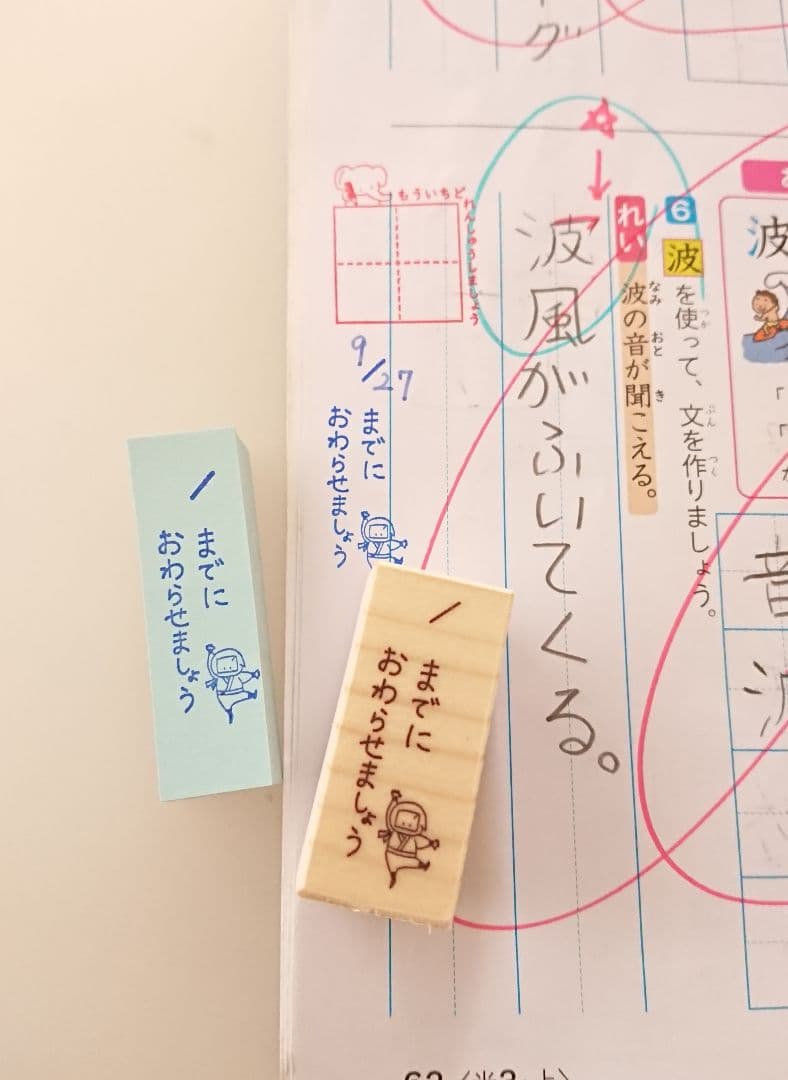 グ
6
波を使って、文を作りましょう。
つか
ぶん
つく
れい
波の音が聞こえる。
なみ
おと
き
波風がふいてくる。
もういちど
れんしゅうしましょう
9/27
までに
おわらせましょう
/
までに
おわらせましょう
/
までに
おわらせましょう
波
音